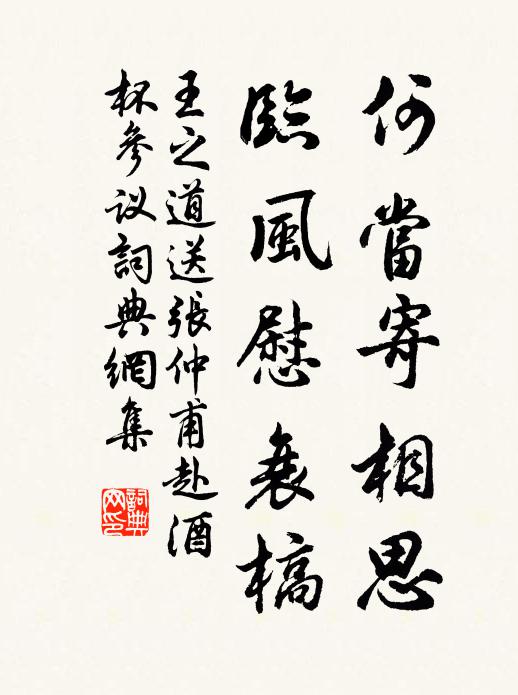 何當寄相思
臨風慰衰槁
王之道送張仲甫赴酒
杯參议詞典網集
詞典网印